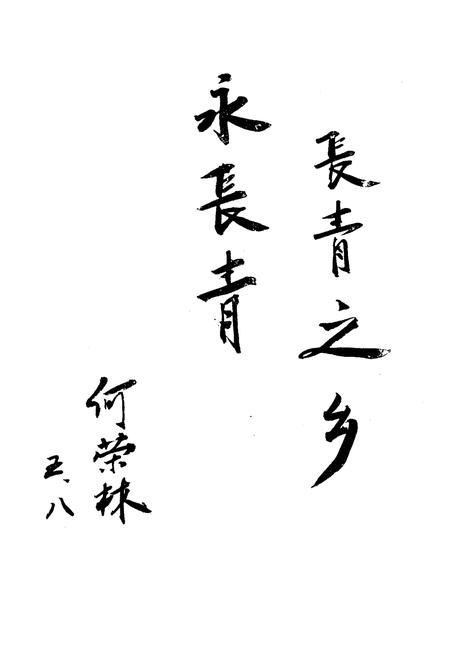 長青之乡
永長青
何荣林
五、八